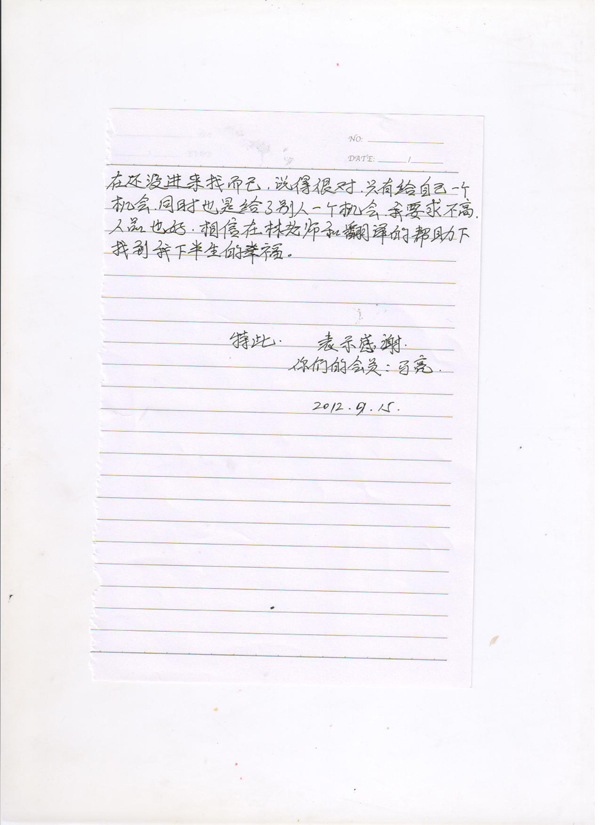 NO.
DATE: /
在还没进来找而已，说得很对，只有给自己一个
机会，同时也是给了别人一个机会，我要求不高，
人品也好，相信在林老师和翻译的帮助下
找到我下半生的幸福。
特此. 表示感谢.
你们的会员：亮.
2012.9.15.